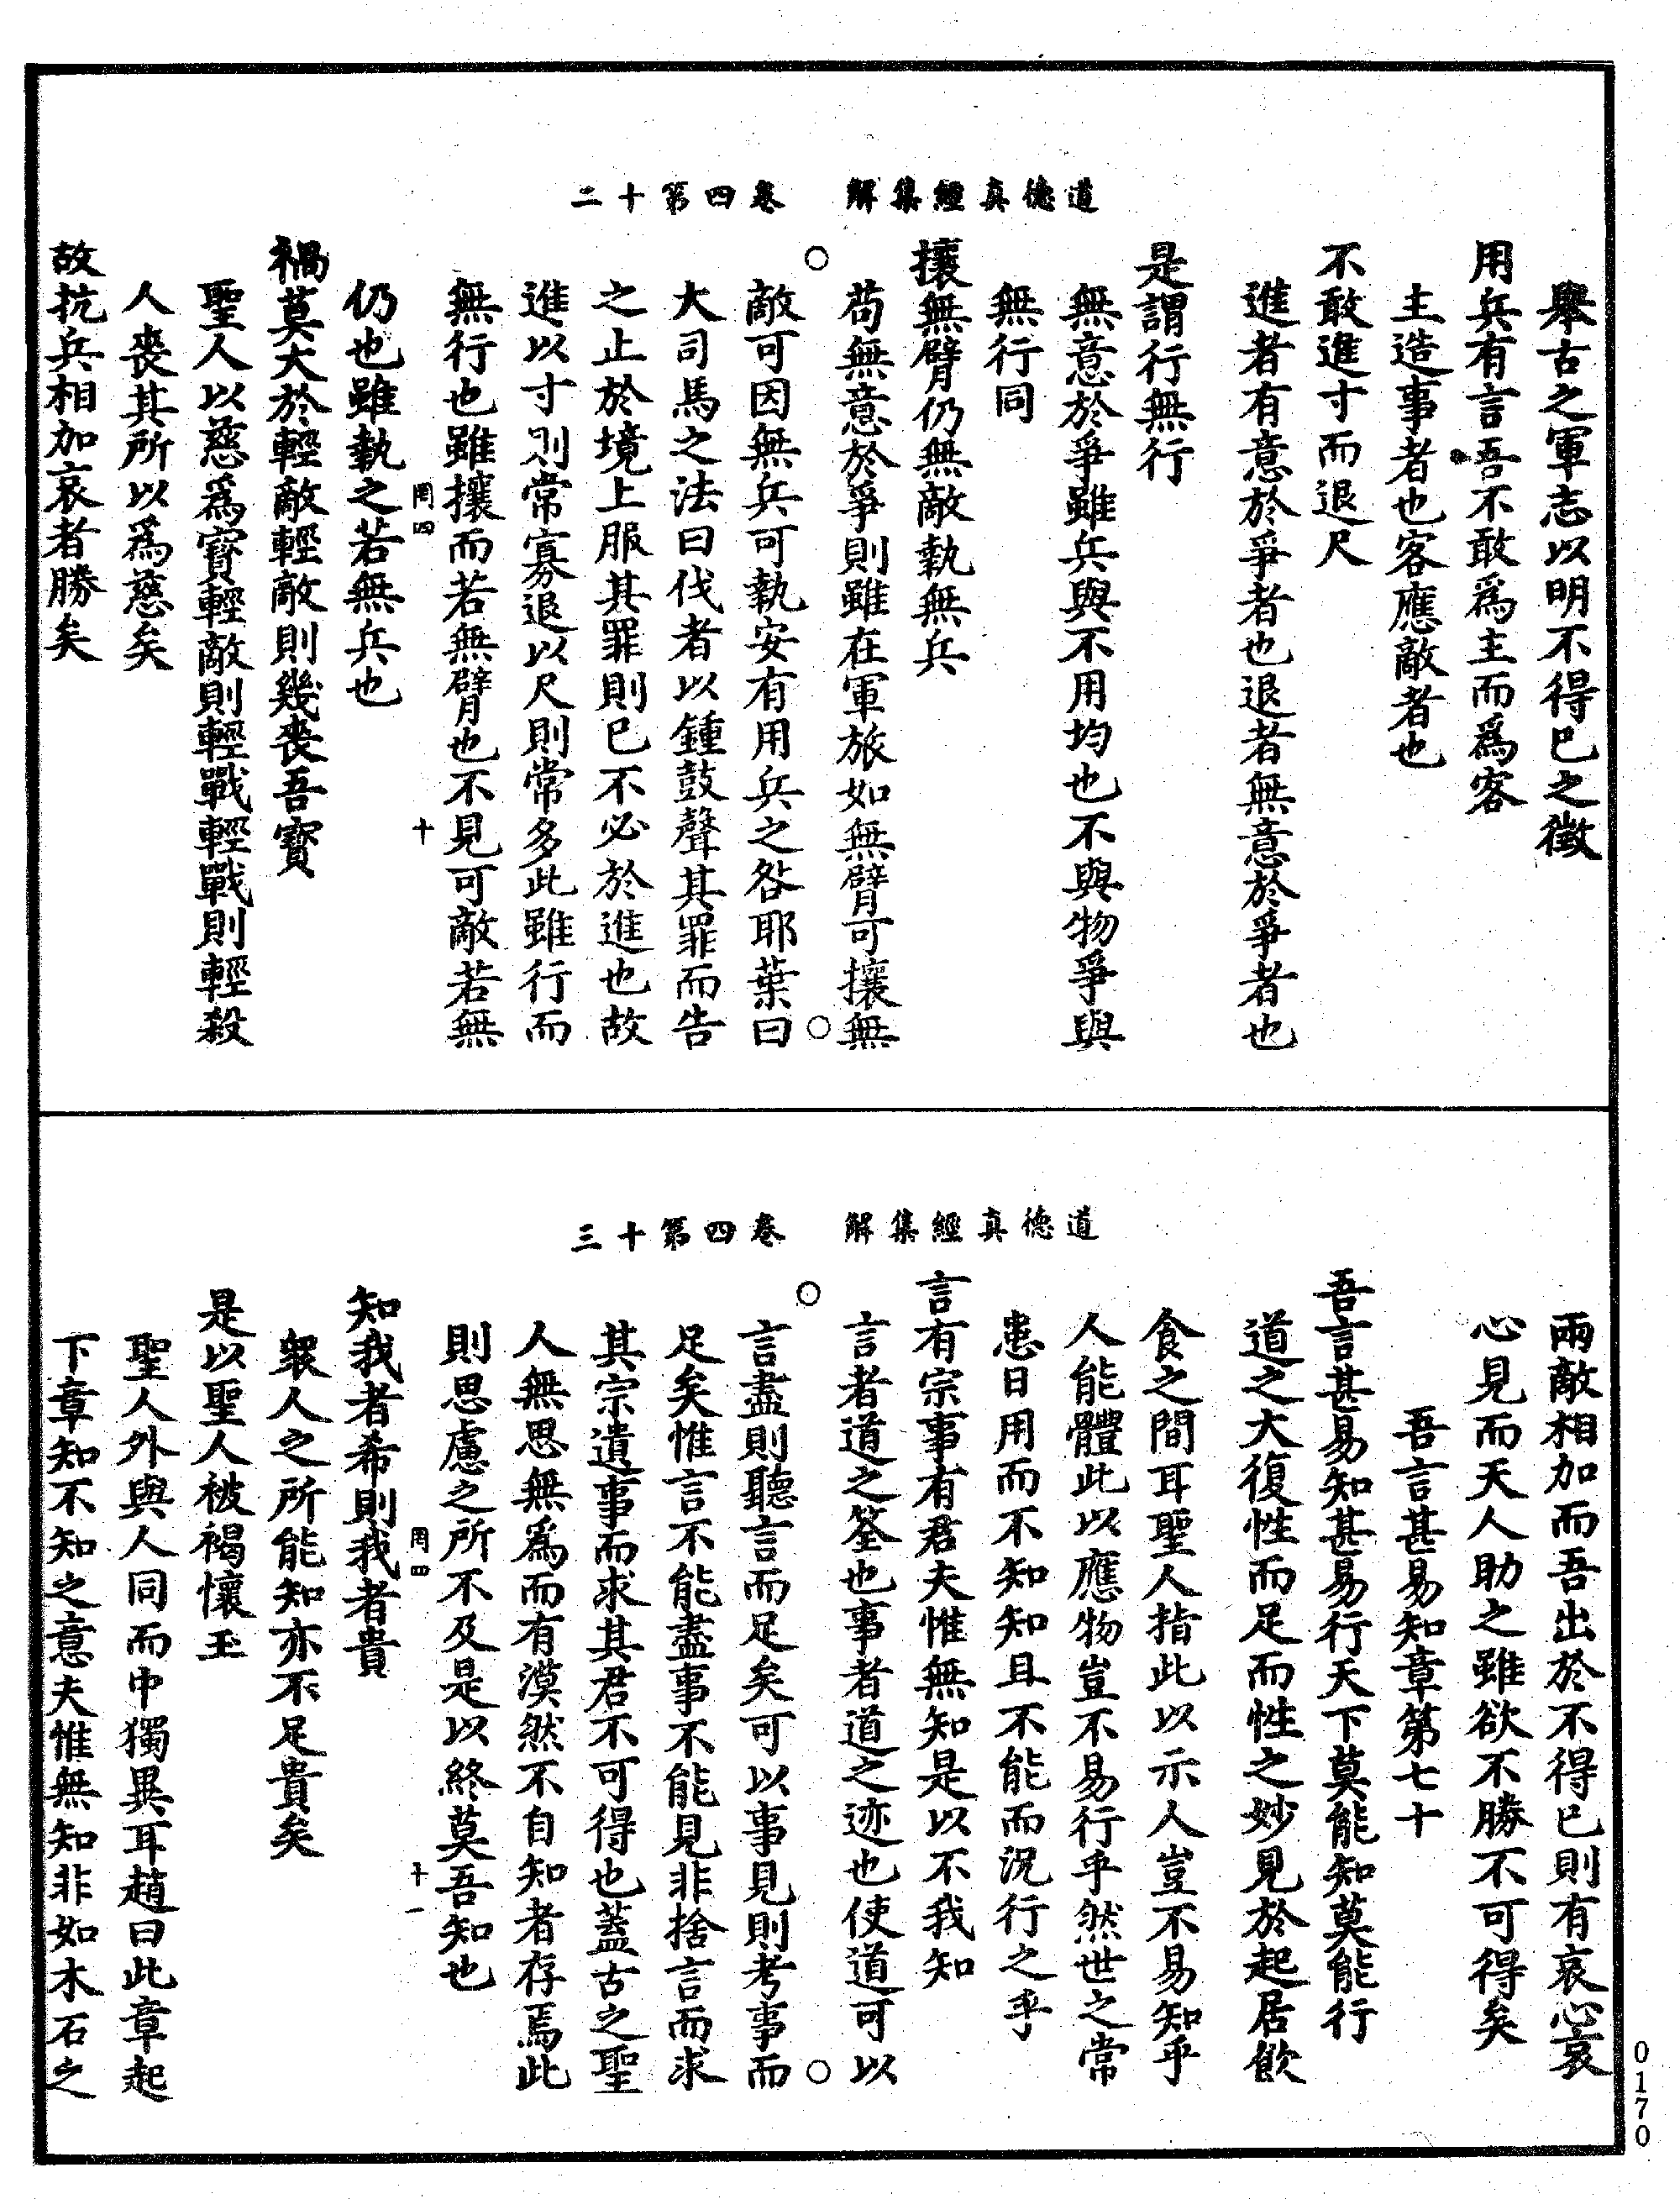 道德真經集解　卷四第十二
舉古之軍志以明不得已之徵
用兵有言吾不敢爲主而爲客
主造事者也客應敵者也
不敢進寸而退尺
進者有意於爭者也退者無意於爭者也
是謂行無行
無意於爭雖兵與不用均也不與物爭與
無行同
攘無臂仍無敵執無兵
苟無意於爭則雖在軍旅如無臂可攘無
敵可因無兵可執安有用兵之咎耶葉曰
大司馬之法曰伐者以鍾鼓聲其罪而告
之止於境上服其罪則已不必於進也故
進以寸則常寡退以尺則常多此雖行而
無行也雖攘而若無臂也不見可敵若無
罔四　十
仍也雖執之若無兵也
禍莫大於輕敵輕敵則幾喪吾寶
聖人以慈爲寶輕敵則輕戰輕戰則輕殺
人喪其所以爲慈矣
故抗兵相加哀者勝矣
道德真經集解　卷四第十三
兩敵相加而吾出於不得已則有哀心哀
心見而天人助之雖欲不勝不可得矣
吾言甚易知章第七十
吾言甚易知甚易行天下莫能知莫能行
道之大復性而足而性之妙見於起居飲
食之間耳聖人指此以示人豈不易知乎
人能體此以應物豈不易行乎然世之常
患日用而不知知且不能而況行之乎
言有宗事有君夫惟無知是以不我知
言者道之筌也事者道之迹也使道可以
言盡則聽言而足矣可以事見則考事而
足矣惟言不能盡事不能見非捨言而求
其宗遺事而求其君不可得也蓋古之聖
人無思無爲而有漠然不自知者存焉此
則思慮之所不及是以終莫吾知也
罔四　十一
知我者希則我者貴
衆人之所能知亦不足貴矣
是以聖人被褐懷玉
聖人外與人同而中獨異耳趙曰此章起
下章知不知之意夫惟無知非如木石之
0170